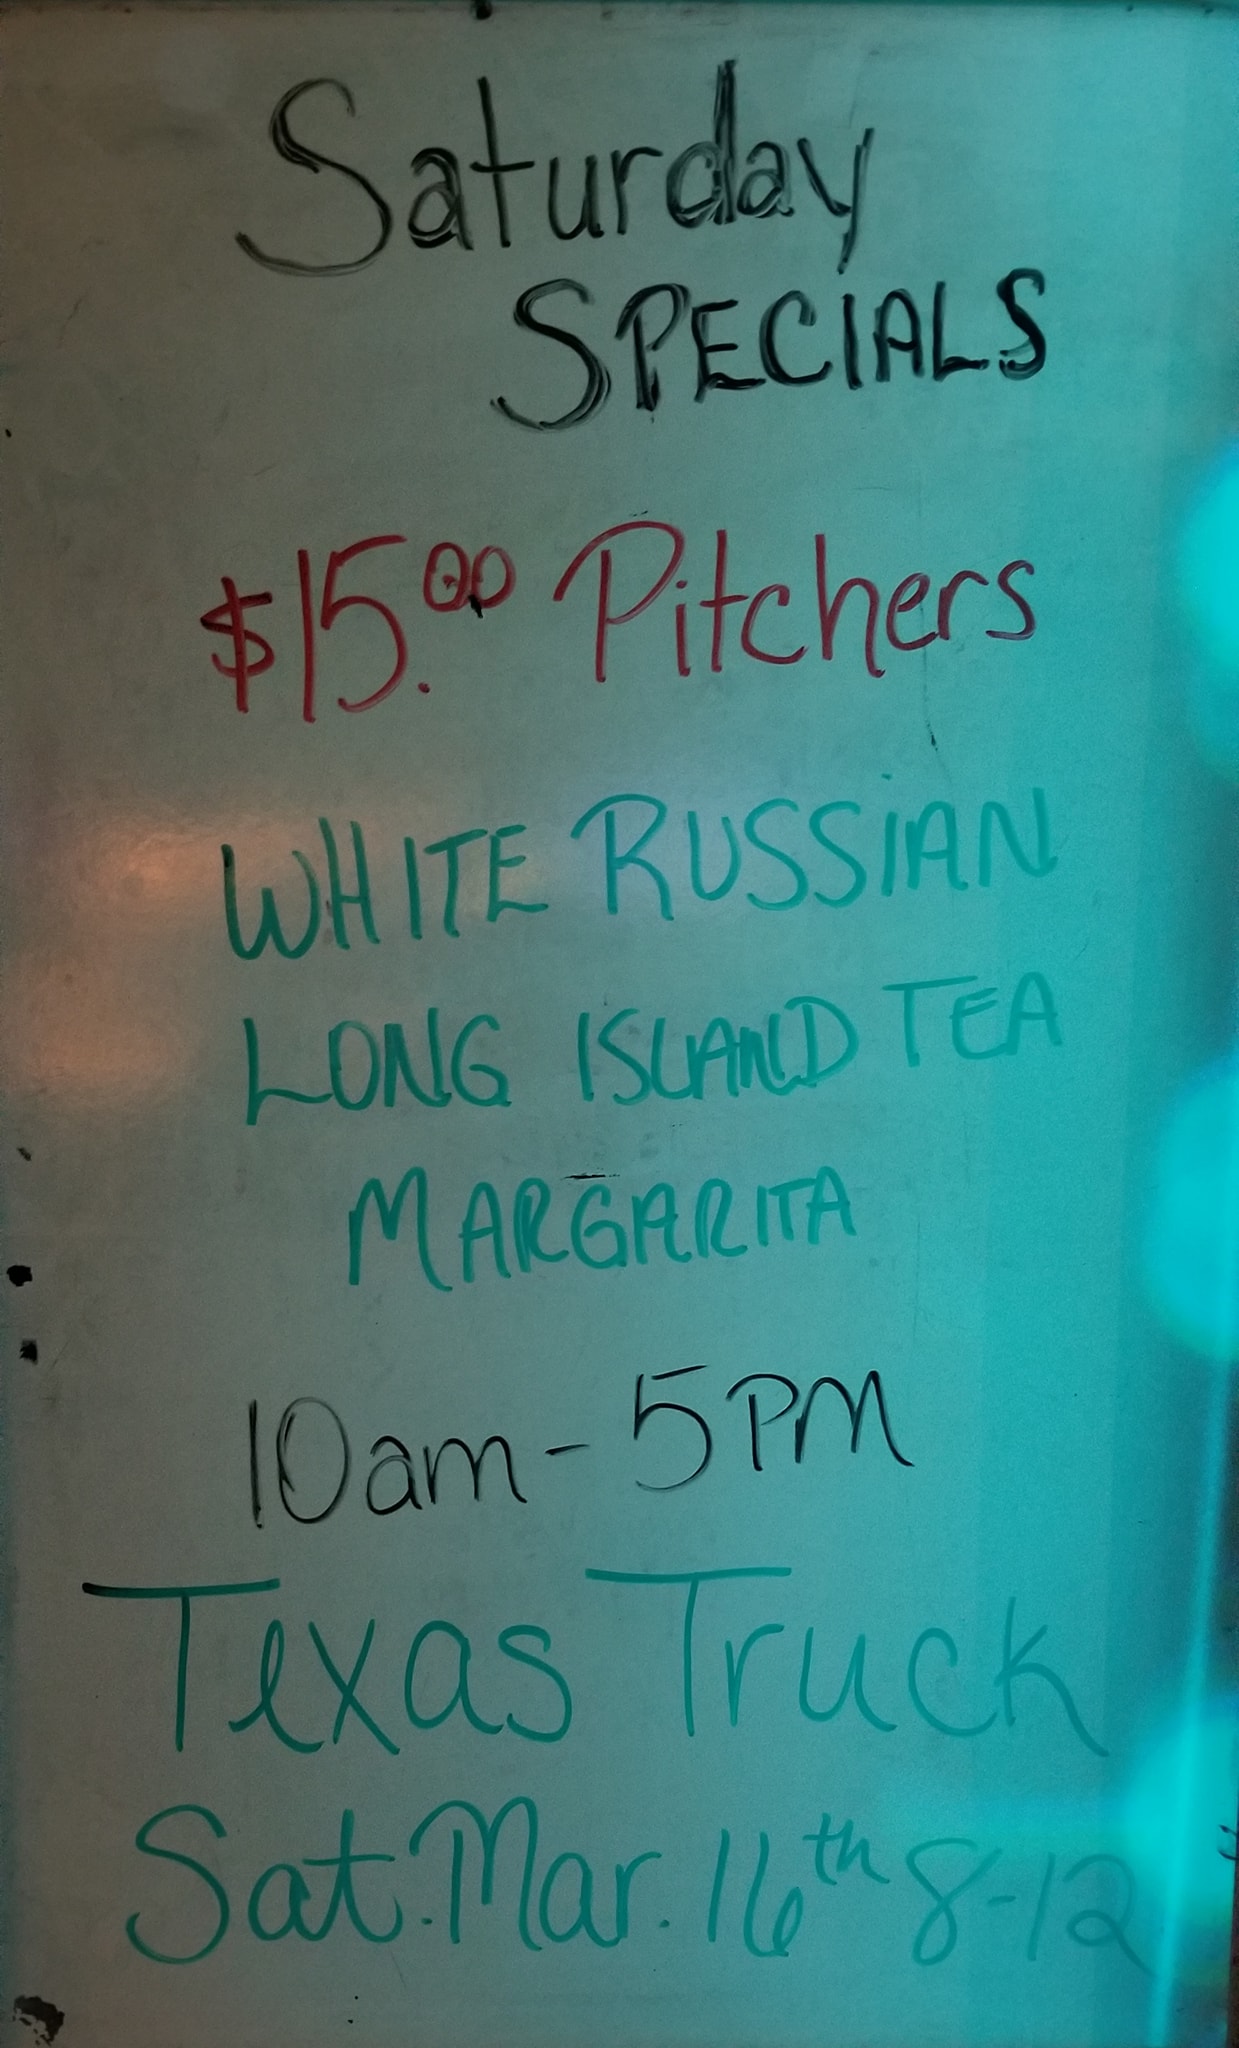 Saturday
SPECIALS
$15.00 Pitchers
WHITE RUSSIAN
LONG ISLAND TEA
MARGARITA
10am-5PM
Texas Truck
Sat. Mar. 16th 8-12